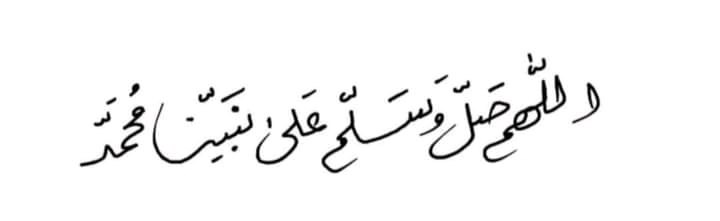 اللّٰهم صَلّ وَسَلّم عَلىٰ نبَيّنا مُحمَّد